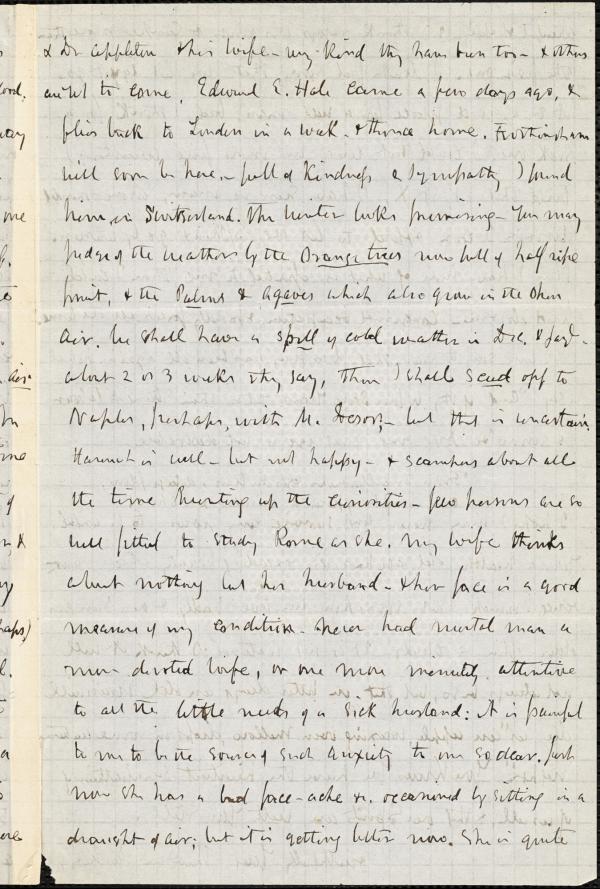 & Dr Appleton & his wife - very kind they have been too - & others
are yet to come. Edward E. Hale came a few days ago, &
flies back to London in a week. & thence home. Frothingham
will soon be here, - full of kindness & sympathy I found
him, in Switserland. The winter looks promising - You may
judge of the weather by the Orange trees now full of half ripe
fruit, & the Palms & agaves which also grow in the open
air. We shall have a spell of cold weather in Dec. & Jany -
about 2 or 3 weeks they say, then I shall scud off to
Naples, perhaps, with M. Desor, - but this is uncertain.
Hannah is well - but not happy - & scampers about all
the time hunting up the curiosities - few persons are so
well fitted to study Rome as she. My wife thinks
about nothing but her husband - & her face is a good
measure of my condition. Never had mortal man a
more devoted wife, or one more minutely attentive
to all the little needs of a sick husband: it is painful
to me to be the source of such anxiety to one so dear. Just
now she has a bad face-ache &c. occasioned by sitting in a
draught of air; but it is getting better now. She is quite
ood,
one
air
me
of
haps)
a